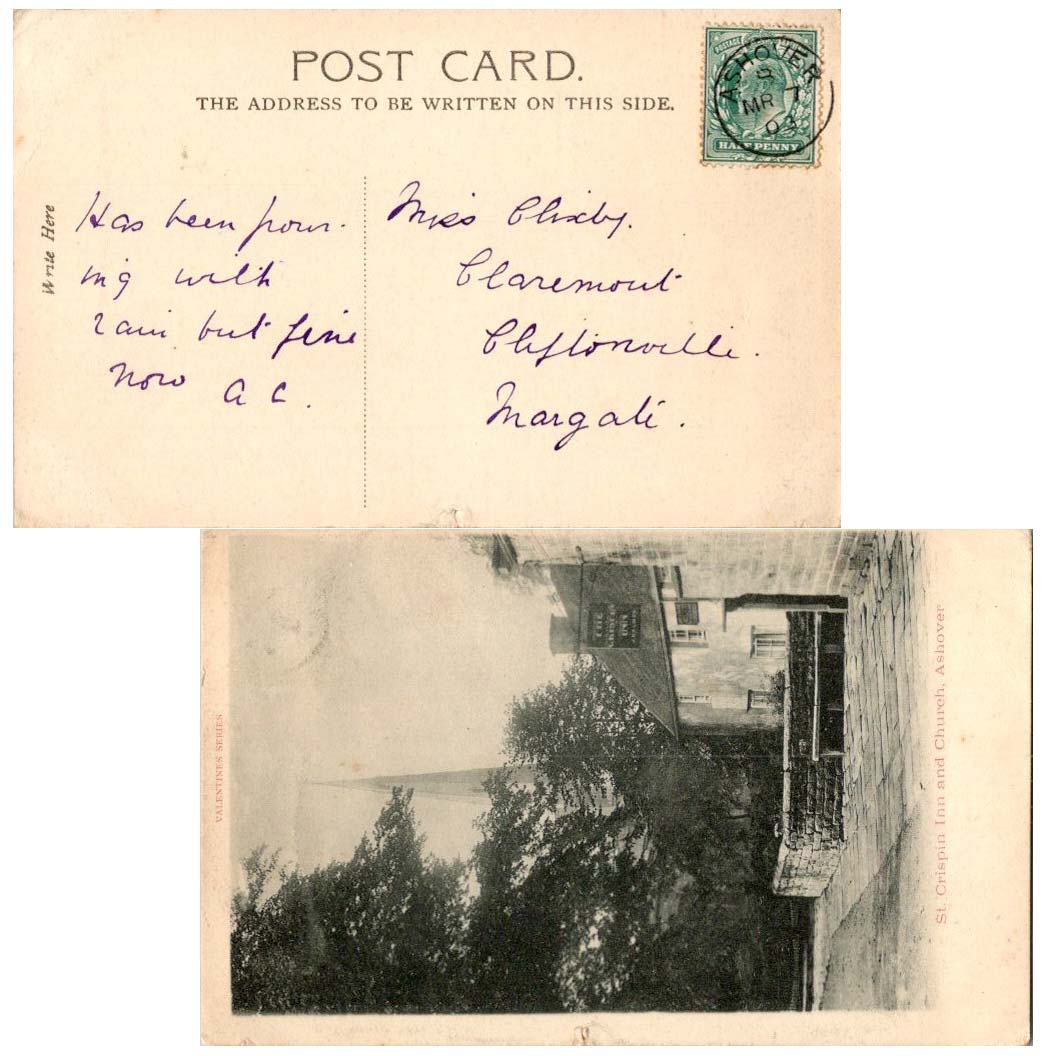 POST CARD.
THE ADDRESS TO BE WRITTEN ON THIS SIDE.
POSTAGE
ASHOVER
MR 7
03
HALF PENNY
Write Here
Has been pour-
ing with
rain but fine
now A C.
Miss Clixby.
Claremont
Cliftonville.
Margate.
VALENTINES SERIES
INN
St. Crispin Inn and Church, Ashover